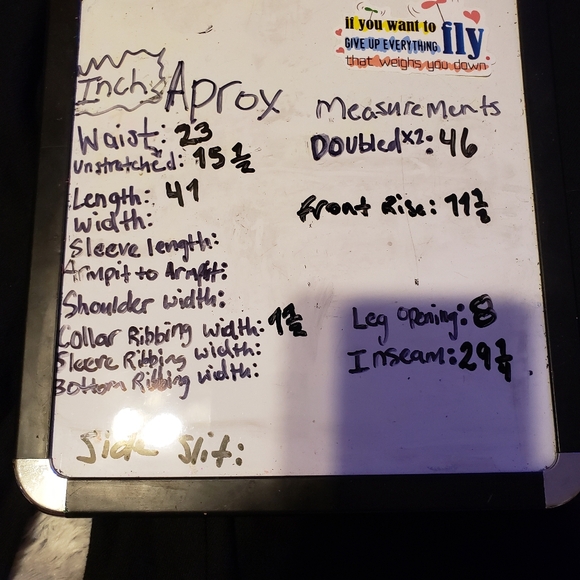 if you want to
GIVE UP EVERYTHING fly
that weighs you down
Inch Aprox Measurements
Waist: 23 Doubled x2: 46
Unstratched: 15 1/2
Length: 41
Front Rise: 11 1/2
Width:
Sleeve length:
Armpit to Armpit:
Shoulder width:
Collar Ribbing width: 1 1/2
Leg opening: 8
Sleeve Ribbing width:
Inseam: 29 1/4
Bottom Ribbing width:
Side Slit: